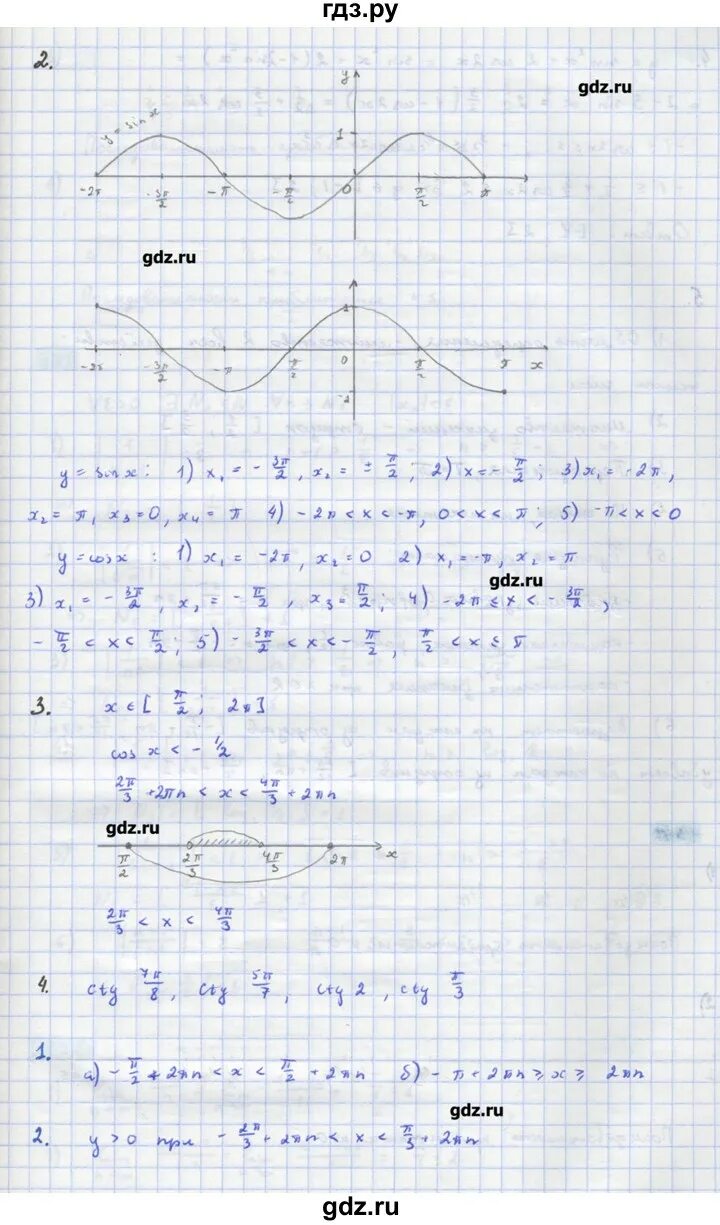 гдз.ру
2.
gdz.ru
y
1
y = sin x
-2π -3π/2 -π -π/2 0 π/2 π
gdz.ru
1
-2π -3π/2 -π π/2 0 π/2 π x
-1
y = sin x : 1) x₁ = - 3π/2, x₂ = ± π/2 ; 2) x = - π/2 ; 3) x₁ = -2π,
x₂ = π, x₃ = 0, x₄ = π 4) -2π < x < -π, 0 < x < π ; 5) -π < x < 0
y = cos x : 1) x₁ = -2π, x₂ = 0 2) x₁ = -π, x₂ = π
gdz.ru
3) x₁ = - 3π/2, x₂ = - π/2, x₃ = π/2 ; 4) -2π ≤ x < - 3π/2,
- π/2 < x < π/2 ; 5) - 3π/2 < x < - π/2, π/2 < x ≤ π
3. x ∈ [ π/2 ; 2π ]
cos x < - 1/2
2π/3 + 2πn < x < 4π/3 + 2πn
gdz.ru
π/2 2π/3 4π/3 2π x
2π/3 < x < 4π/3
4. ctg 7π/8, ctg 5π/7, ctg 2, ctg π/3
1.
а) - π/2 + 2πn < x < π/2 + 2πn б) - π + 2πn ≥ x ≥ 2πn
gdz.ru
2. y > 0 при - 2π/3 + 2πn < x < π/3 + 2πn
gdz.ru